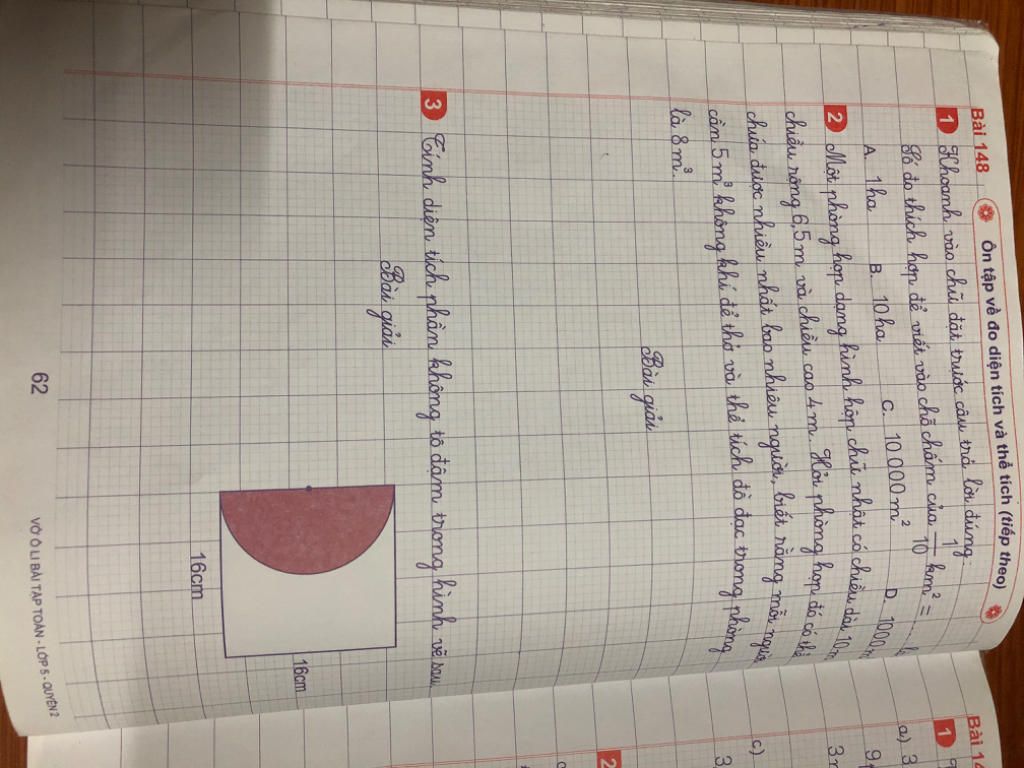 Bài 148
Ôn tập về đo diện tích và thể tích (tiếp theo)
1 Khoanh vào chữ đặt trước câu trả lời đúng:
Số đo thích hợp để viết vào chỗ chấm của 1/10 km² = ......
A. 1 ha B. 10 ha C. 10 000 m² D. 1000
2 Một phòng họp dạng hình hộp chữ nhật có chiều dài 10
chiều rộng 6,5 m và chiều cao 4 m. Hỏi phòng họp đó có
chứa được nhiều nhất bao nhiêu người, biết rằng mỗi
cần 5 m³ không khí để thở và thể tích đồ đạc trong phòng
là 8 m³.
Bài giải
3 Tính diện tích phần không tô đậm trong hình vẽ sau.
Bài giải
16cm
16cm
62
VỞ Ô LI BÀI TẬP TOÁN - LỚP 5 - QUYỂN 2
Bài 14
1
a) 3
c)
2